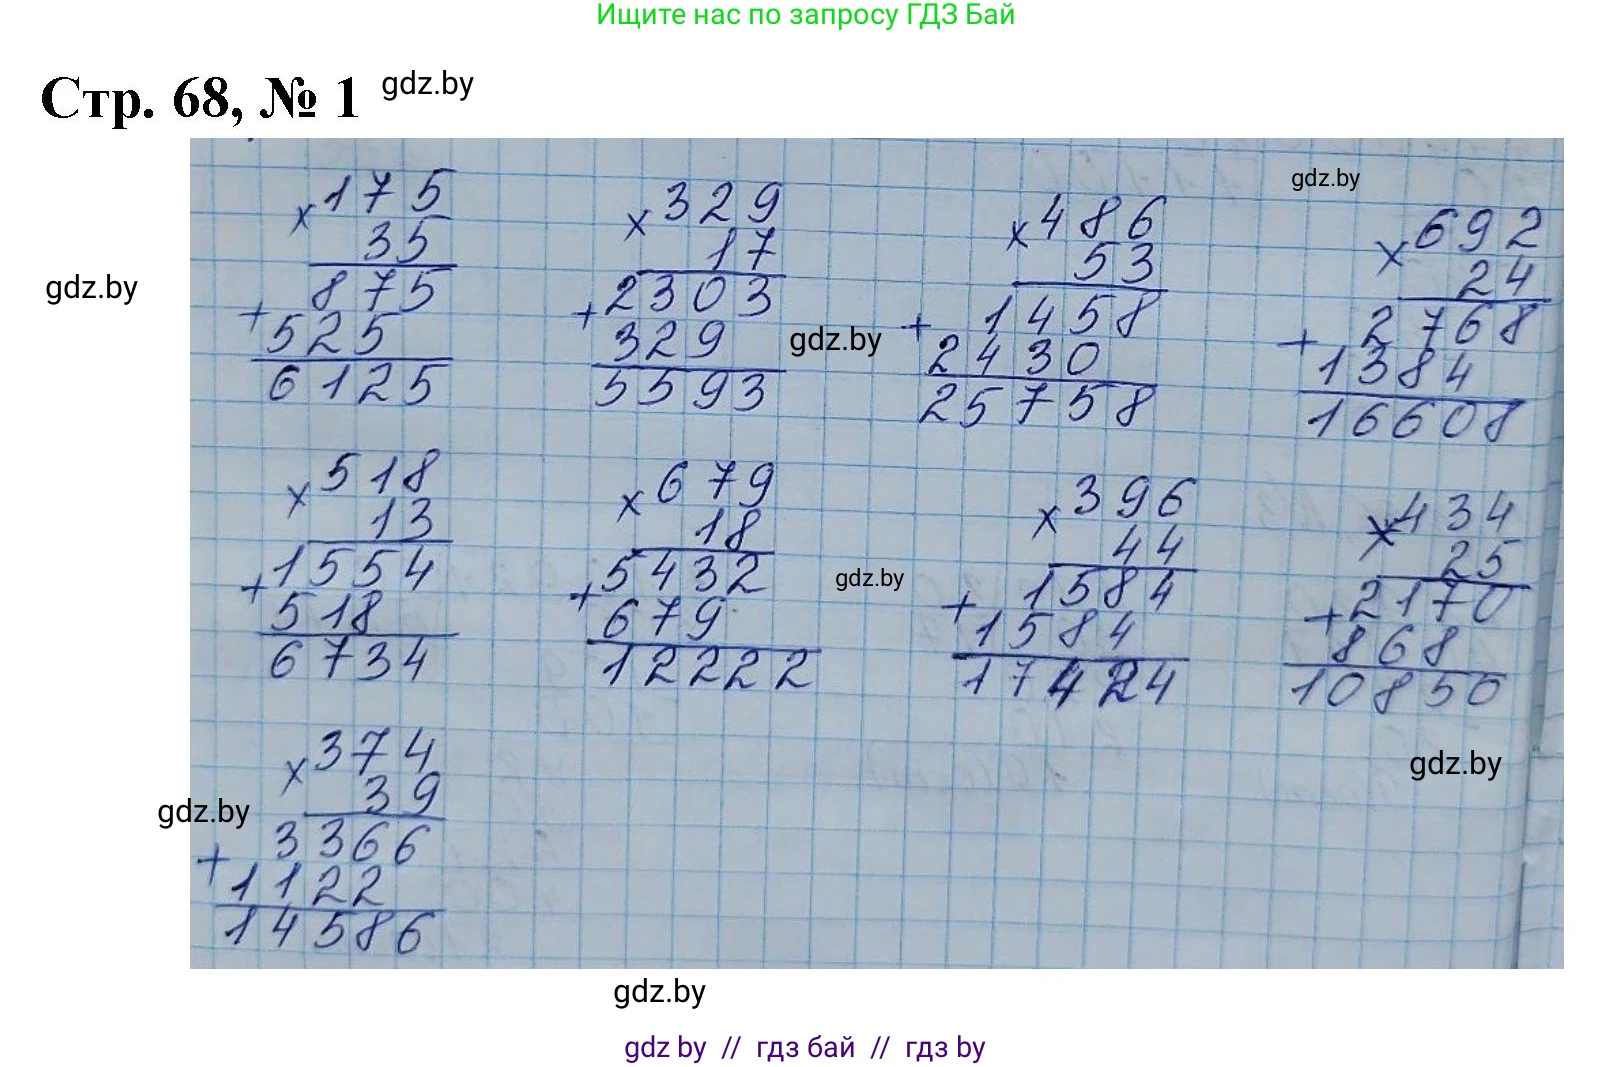 Ищите нас по запросу ГДЗ Бай
Стр. 68, № 1 gdz.by
gdz.by
× 175
35
875
+ 525
6125
× 329
17
2303
+ 329
5593
gdz.by
× 486
53
1458
+ 2430
25758
× 692
24
2768
+ 1384
16608
gdz.by
× 518
13
1554
+ 518
6734
× 679
18
5432
+ 679
12222
gdz.by
× 396
44
1584
+ 1584
17424
× 434
25
2170
+ 868
10850
gdz.by
× 374
39
3366
+ 1122
14586
gdz.by
gdz.by
gdz by // гдз бай // гдз by